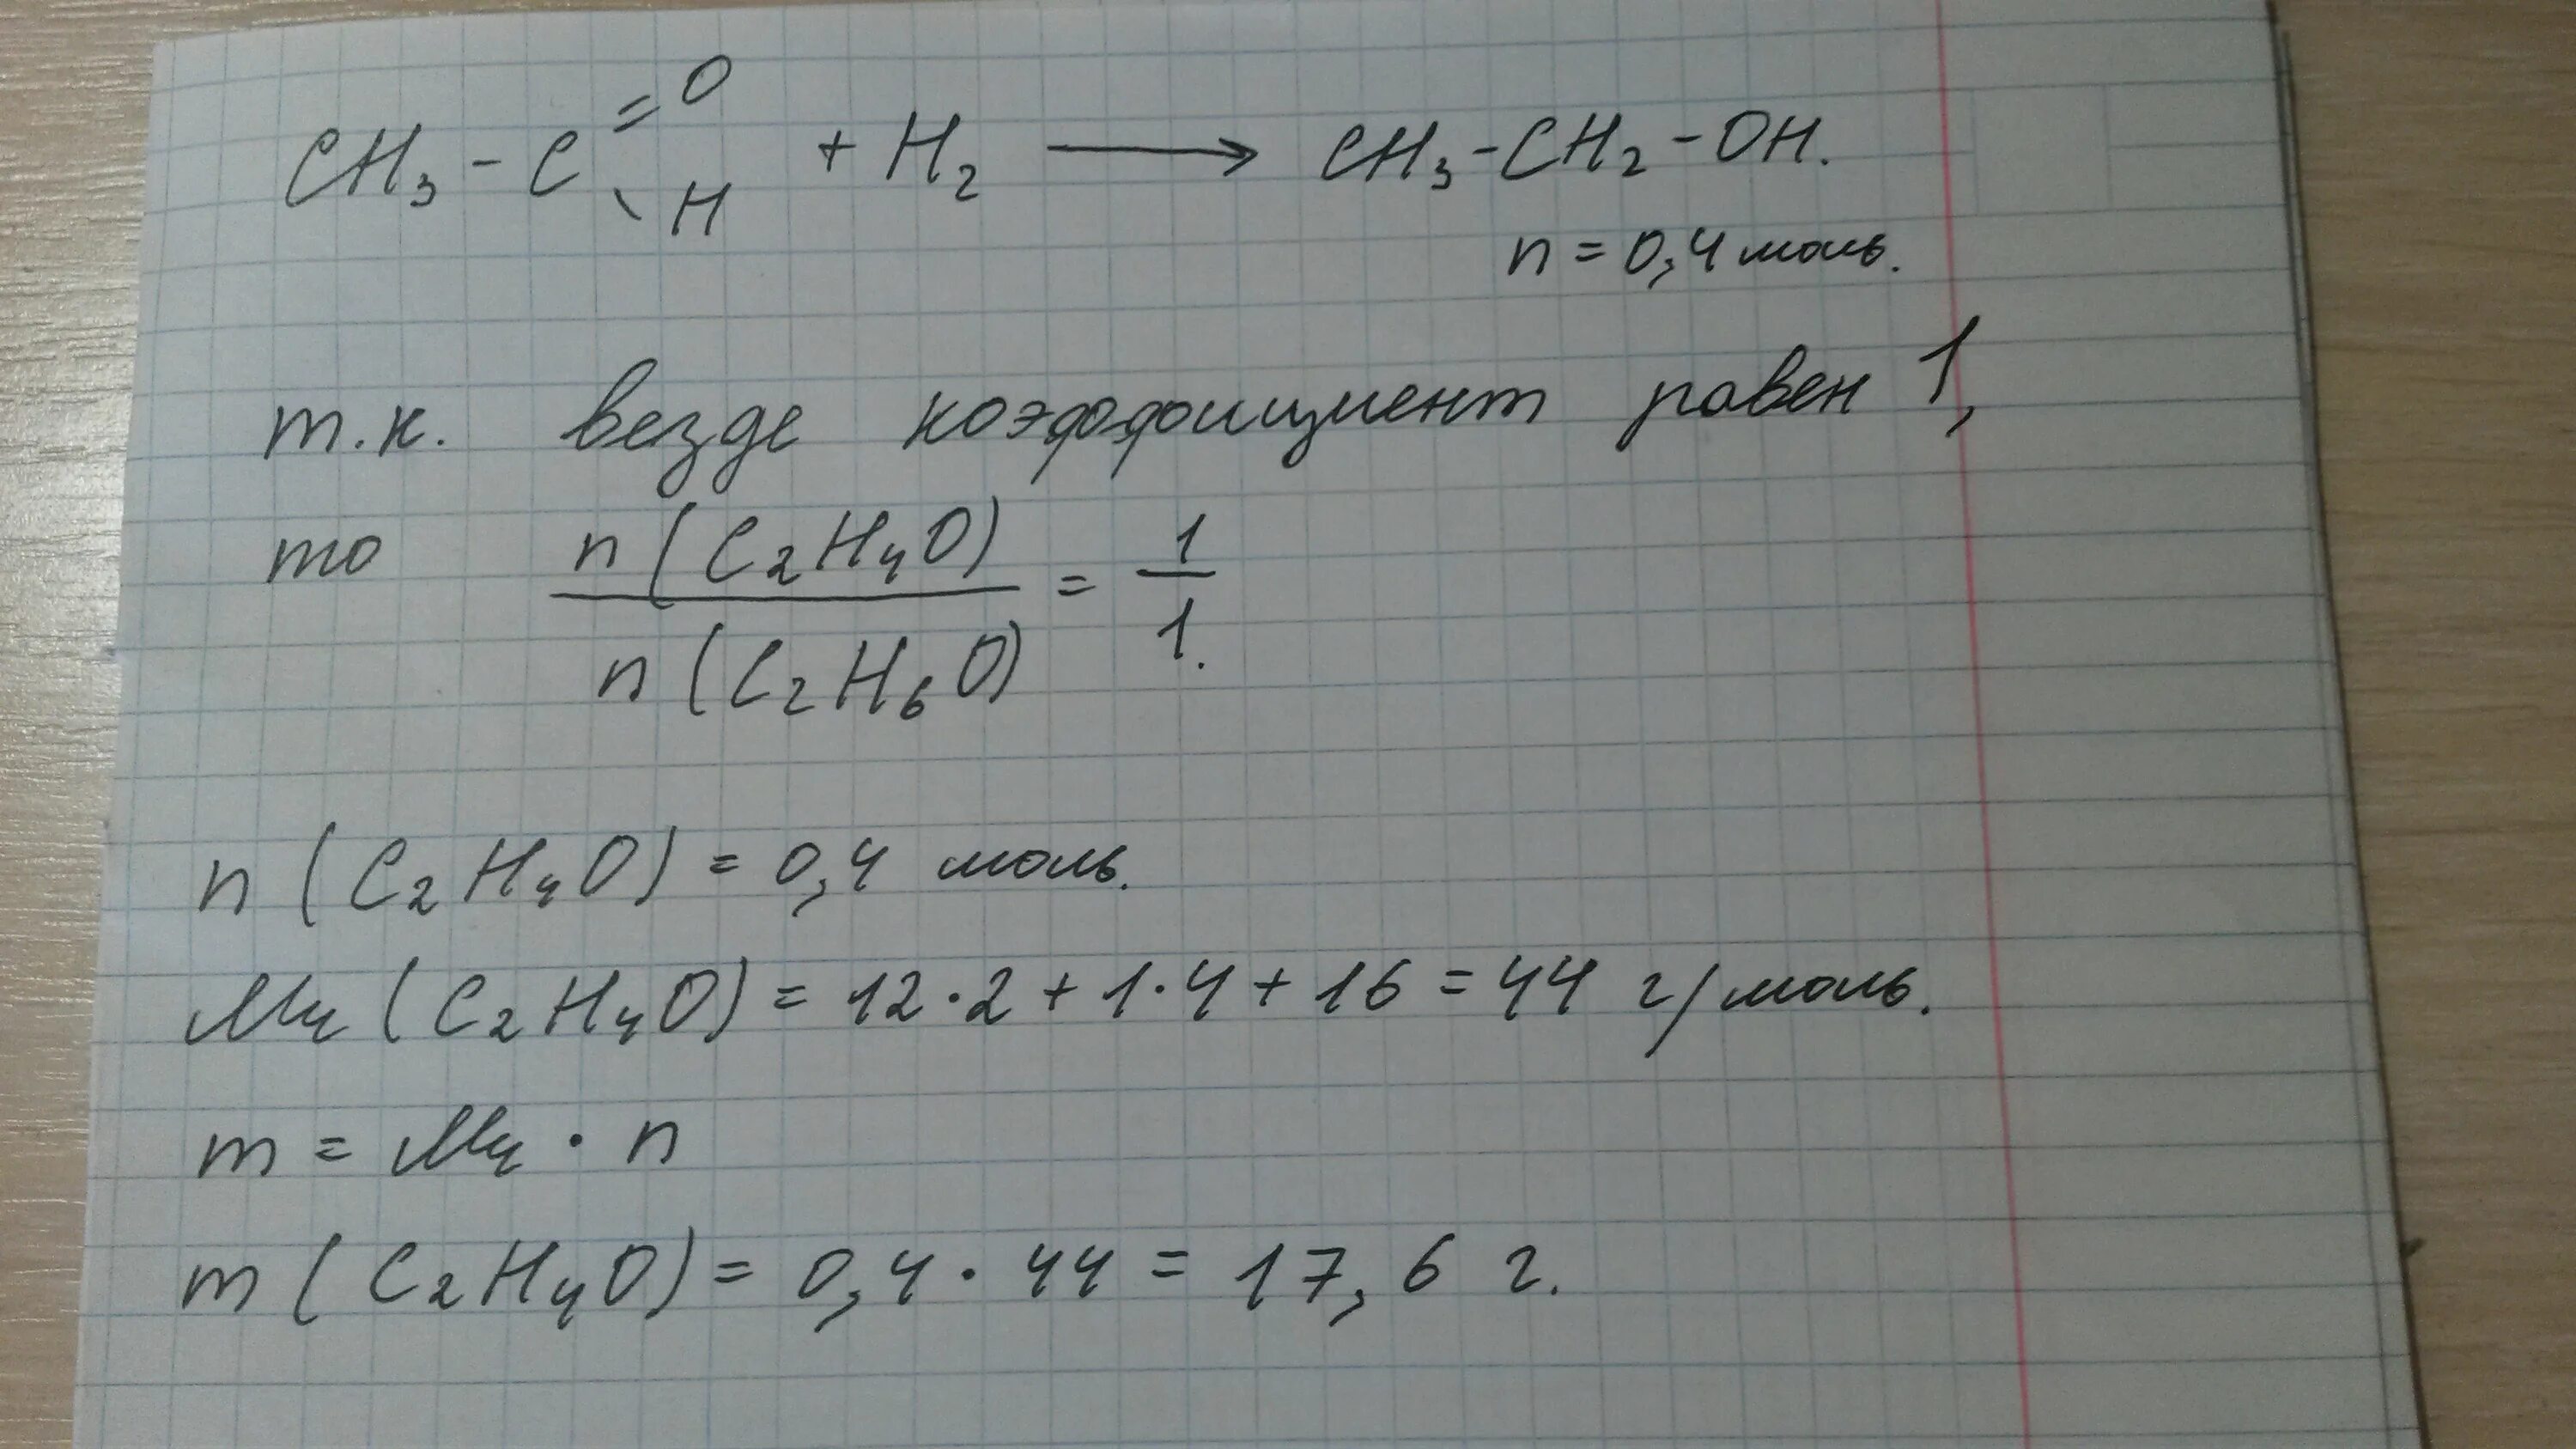 CH₃-C=O\H + H₂ ⟶ CH₃-CH₂-OH.
n = 0,4 моль.
т.к. везде коэффициент равен 1,
то n(C₂H₄O)/n(C₂H₆O) = 1/1.
n(C₂H₄O) = 0,4 моль.
Mr(C₂H₄O) = 12·2 + 1·4 + 16 = 44 г/моль.
m = Mr · n
m(C₂H₄O) = 0,4 · 44 = 17,6 г.